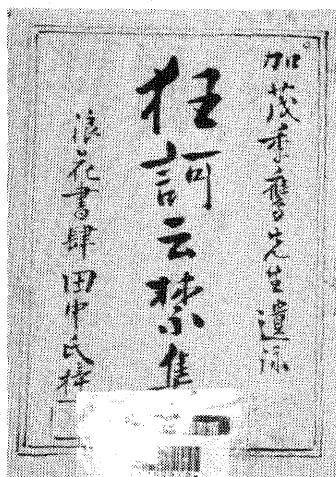 加茂季鷹先生遺詠
狂訶云禁集
浪花書肆 田中氏梓